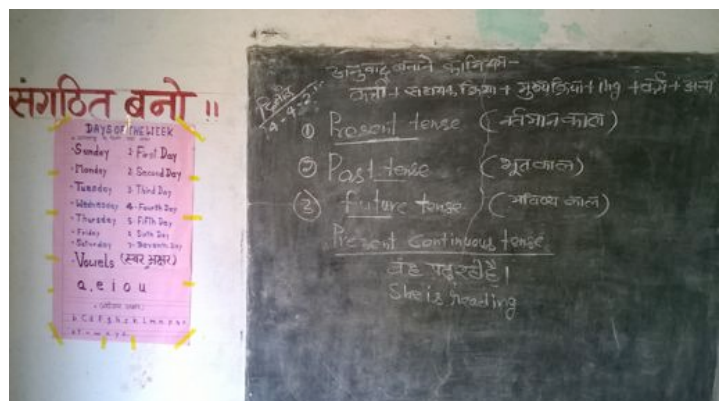 संगठित बनो ॥
DAYS OF THE WEEK
Sunday 1. First Day
Monday 2. Second Day
Tuesday 3. Third Day
Wednesday 4. Fourth Day
Thursday 5. Fifth Day
Friday 6. Sixth Day
Saturday 7. Seventh Day
Vowels (स्वर अक्षर)
a, e i o u
b c d f g h j k l m n p q r
दिनांक
अनुवाद बनाने
कर्ता + सहायक क्रिया + मुख्य क्रिया + ing + कर्म + अन्य
① Present tense (वर्तमान काल)
② Past tense (भूतकाल)
③ future tense (भविष्य काल)
Present continuous tense
वह पढ़ रही है।
She is reading